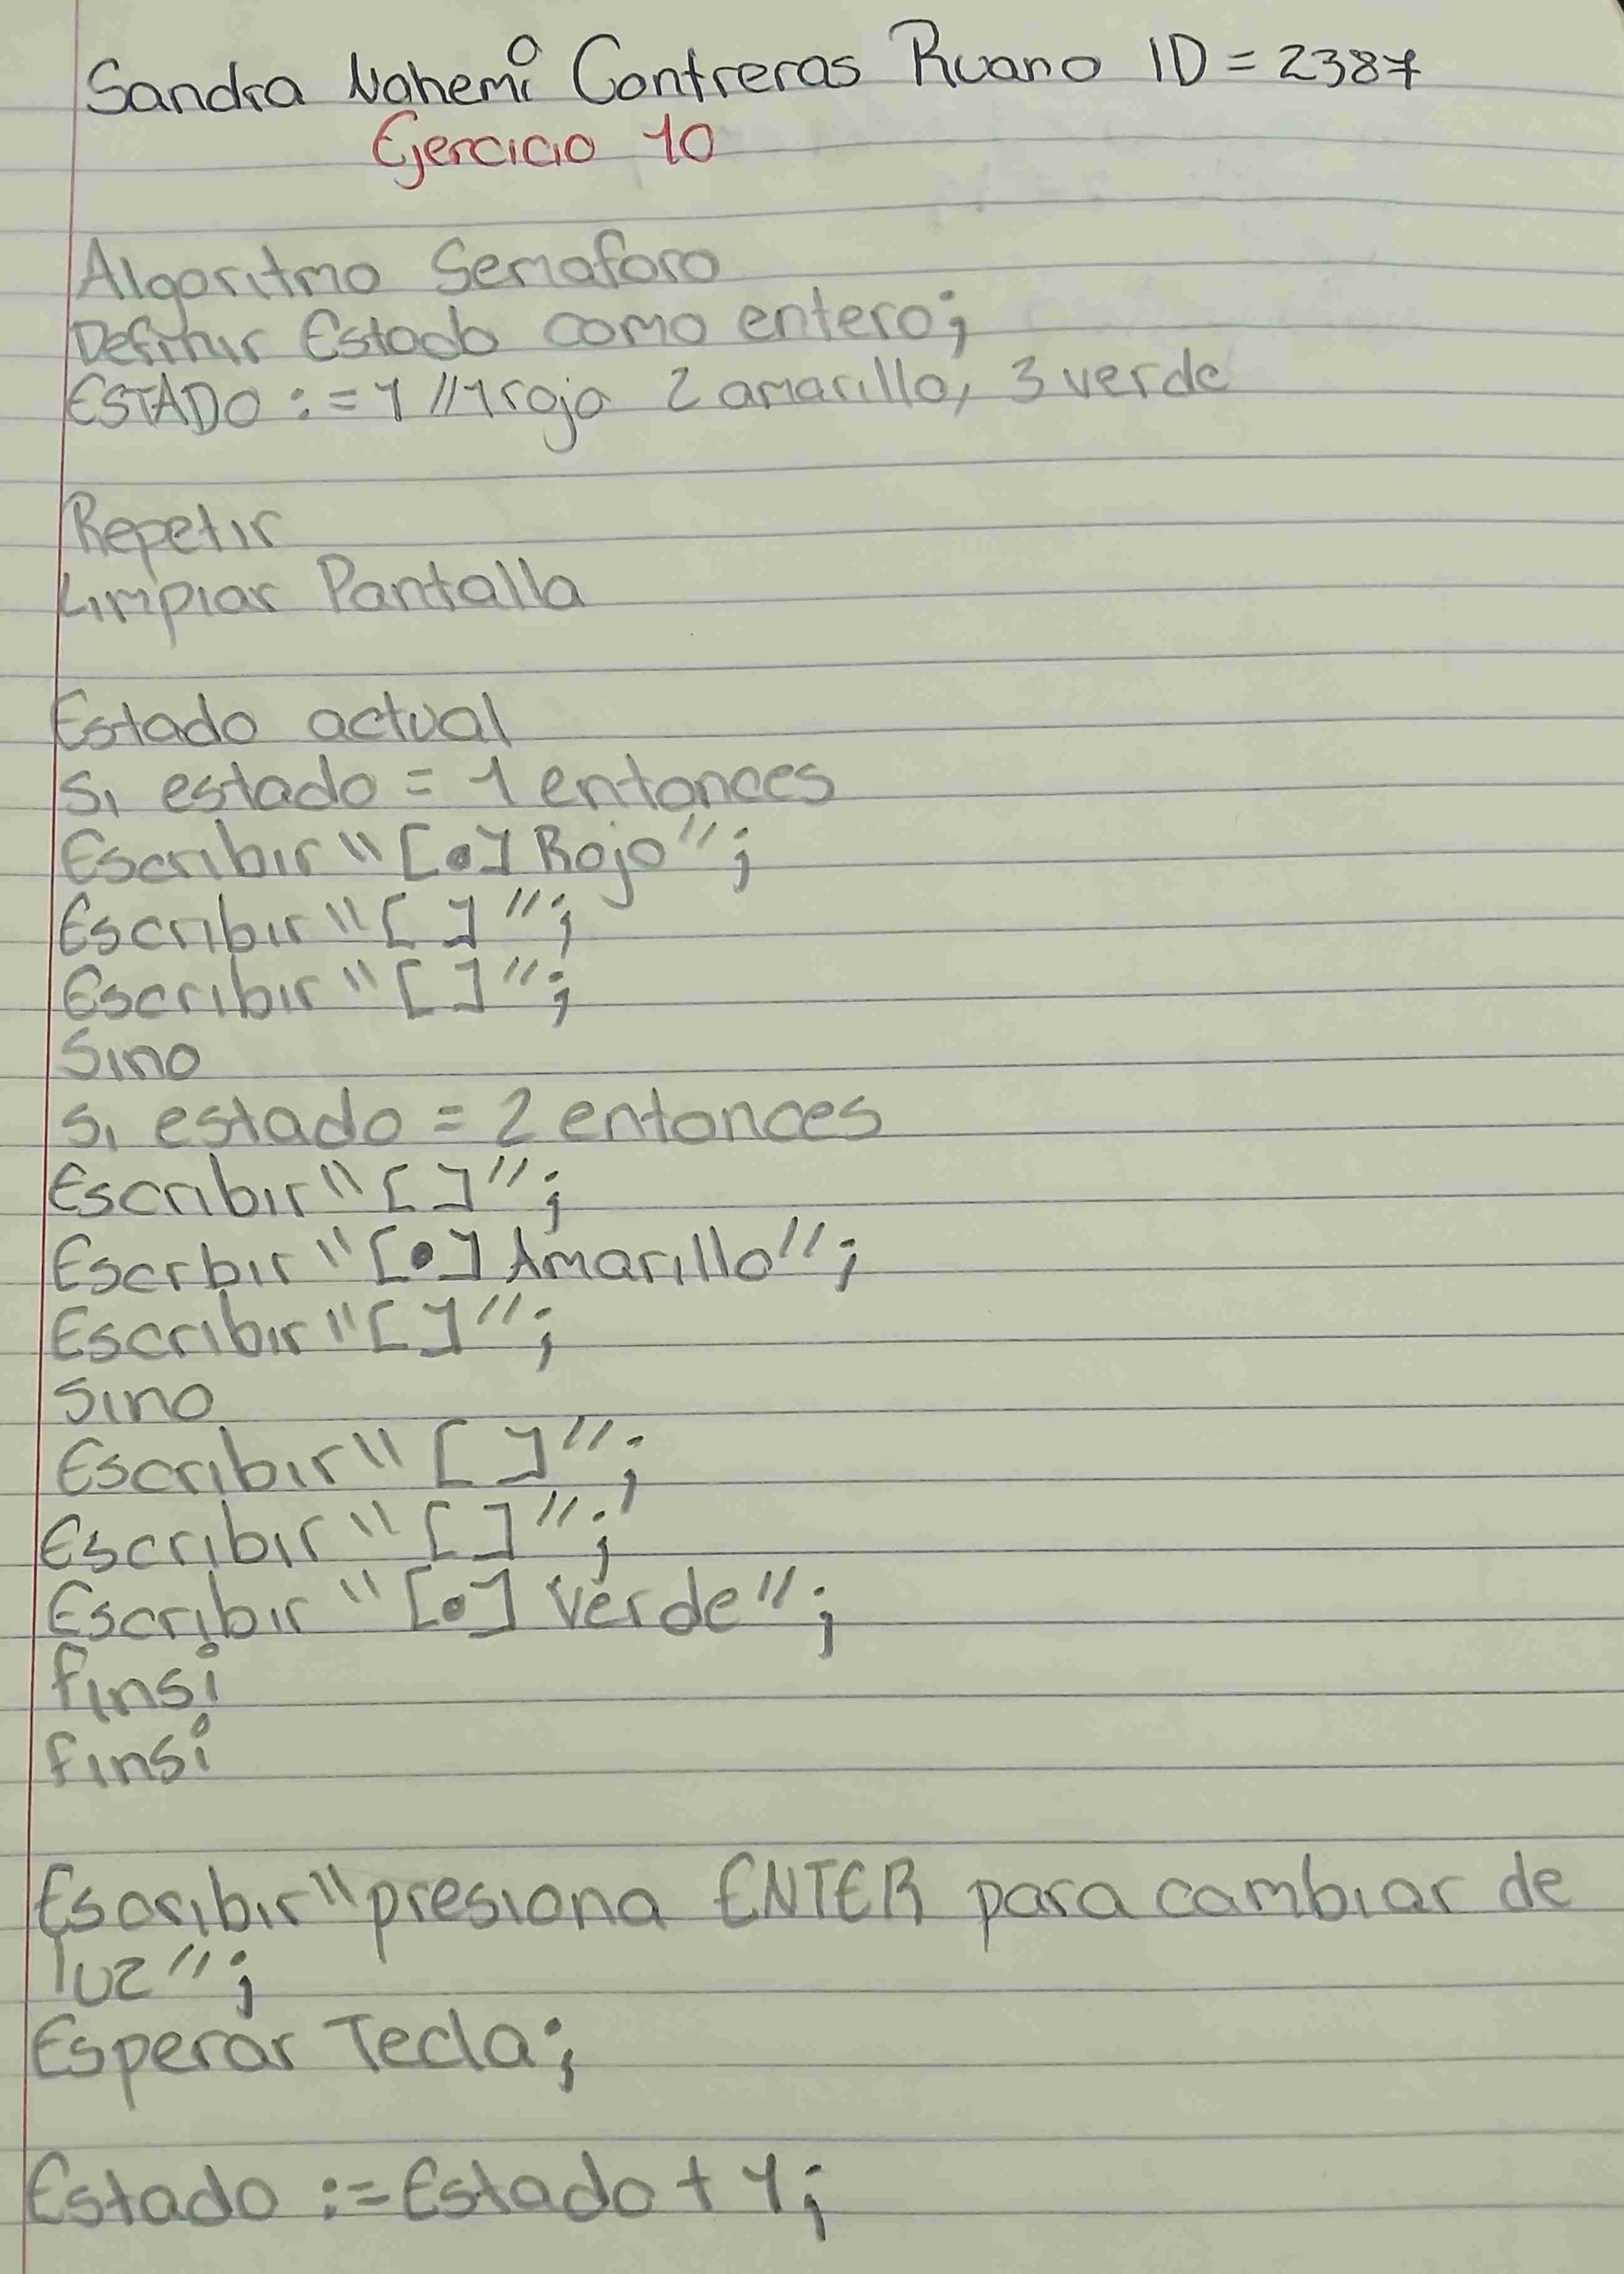 Sandra Nohemi Contreras Ruano ID = 2387
Ejercicio 10
Algoritmo Semaforo
Definir Estado como entero;
ESTADO := 1 // 1 rojo 2 amarillo, 3 verde
Repetir
Limpiar Pantalla
Estado actual
Si estado = 1 entonces
Escribir "[•] Rojo";
Escribir "[ ]";
Escribir "[ ]";
Sino
Si estado = 2 entonces
Escribir "[ ]";
Escrbir "[•] Amarillo";
Escribir "[ ]";
Sino
Escribir "[ ]";
Escribir "[ ]";
Escribir "[•] Verde";
finsi
finsi
Escribir "presiona ENTER para cambiar de
luz";
Esperar Tecla;
Estado := Estado + 1;